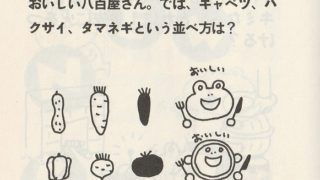 おいしい八百屋さん。では、キャベツ、ハ
クサイ、タマネギという並べ方は？
おいしい
おいしい